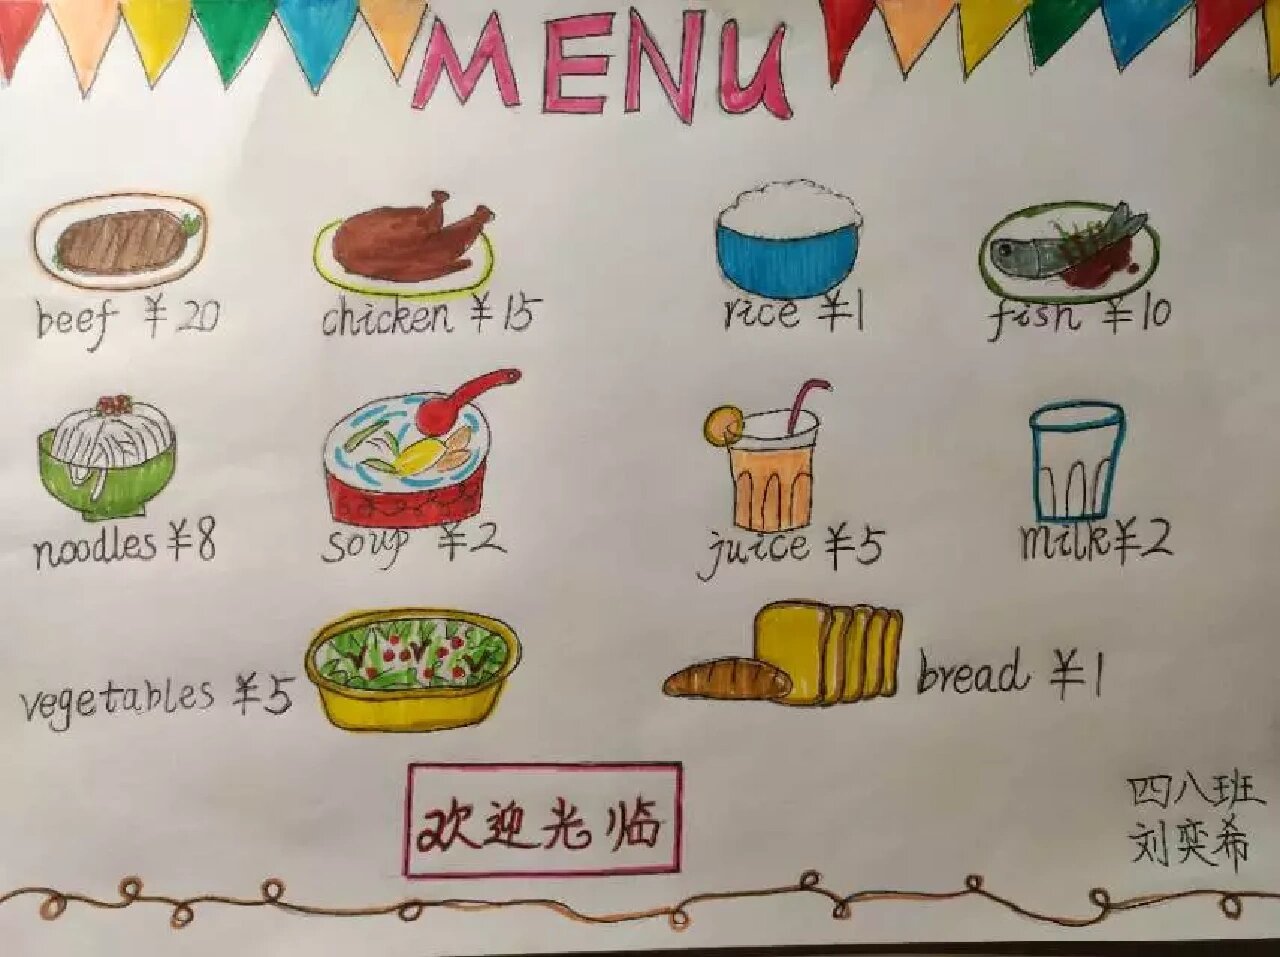 MENU
beef ¥20
chicken ¥15
rice ¥1
fish ¥10
noodles ¥8
soup ¥2
juice ¥5
milk ¥2
vegetables ¥5
bread ¥1
欢迎光临
四八班
刘奕希